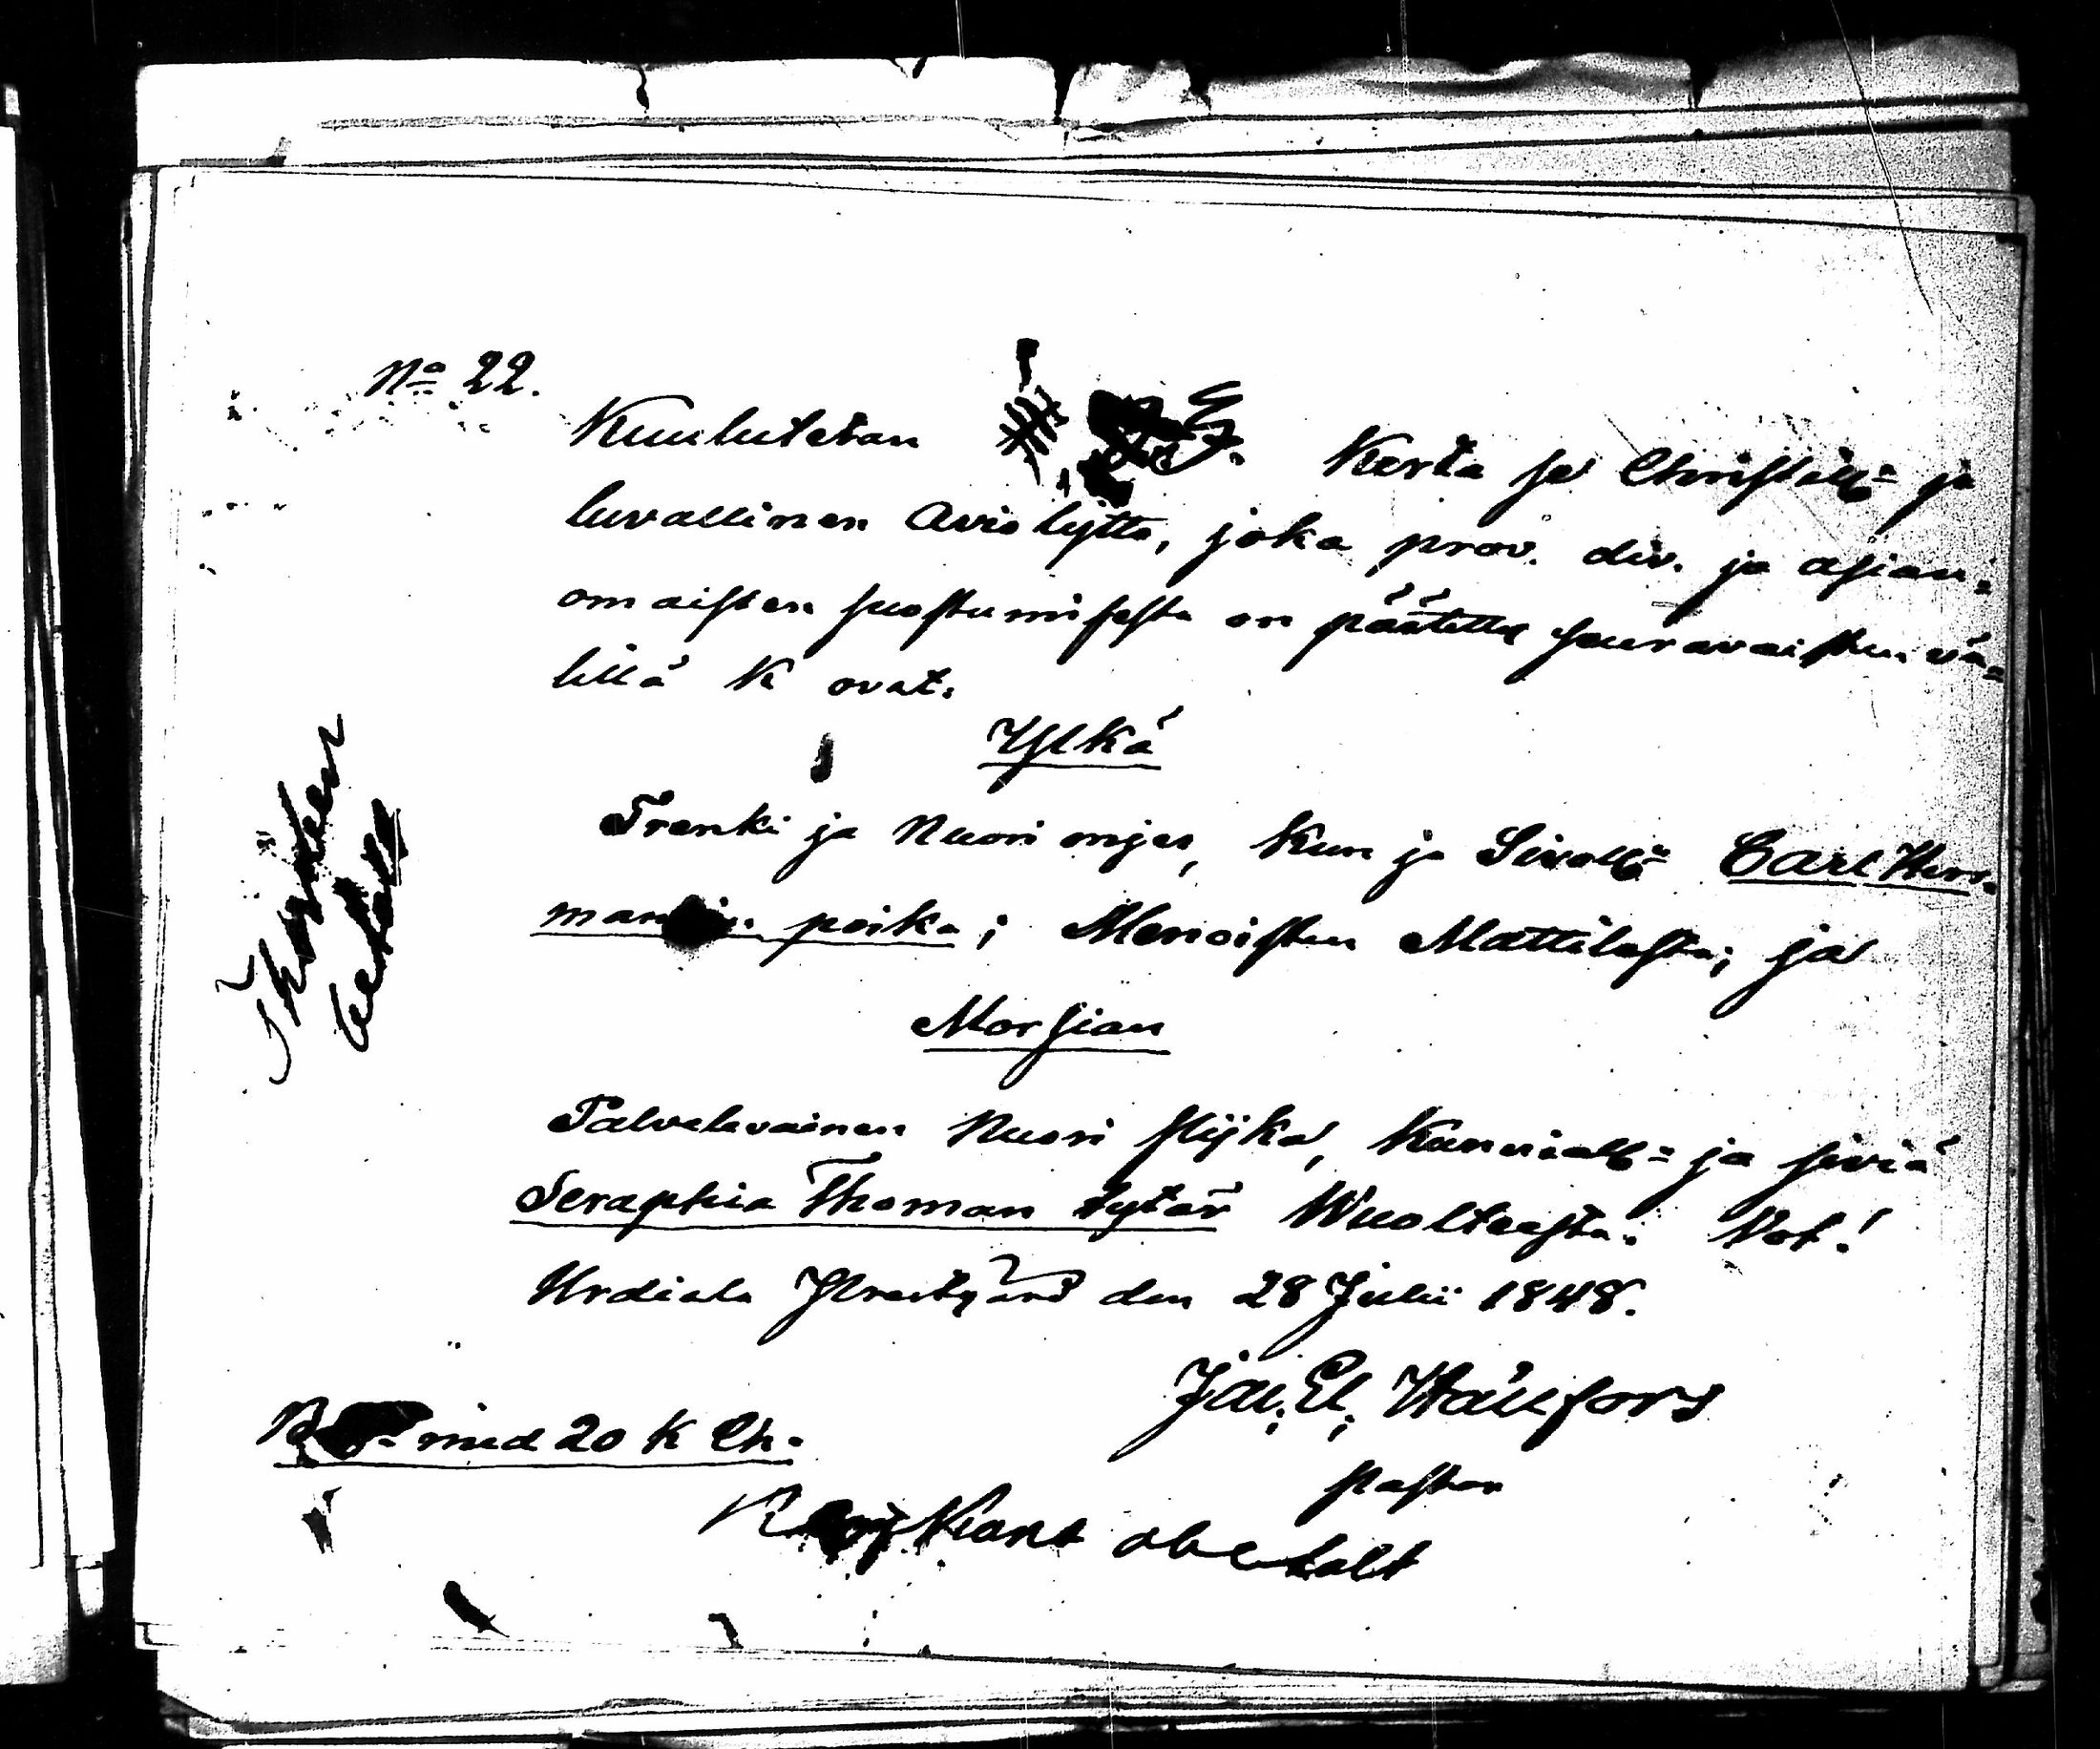 No 22.
Kuulutetan Kerta se Christill= ja
luvallinen Avio lijtto, joka prov. div. ja asian=
omaisten suostumisesta on päätetty seuravaisten vä=
lillä K ovat.
Ylkä
Trenki ja Nuori mjes, Kun ja Sivell= Carl Her=
man poika; Menoisten Mattilasta; ja
Morsian
Palvelevainen Nuori flijka, Kunniall= ja siviä
Seraphia Thoman tytär Wuolteesta. Not!
Urdiala Prestgård den 28 Julii 1848.
Jac. El. Wallfors
pastor
med 20 K
obetalt